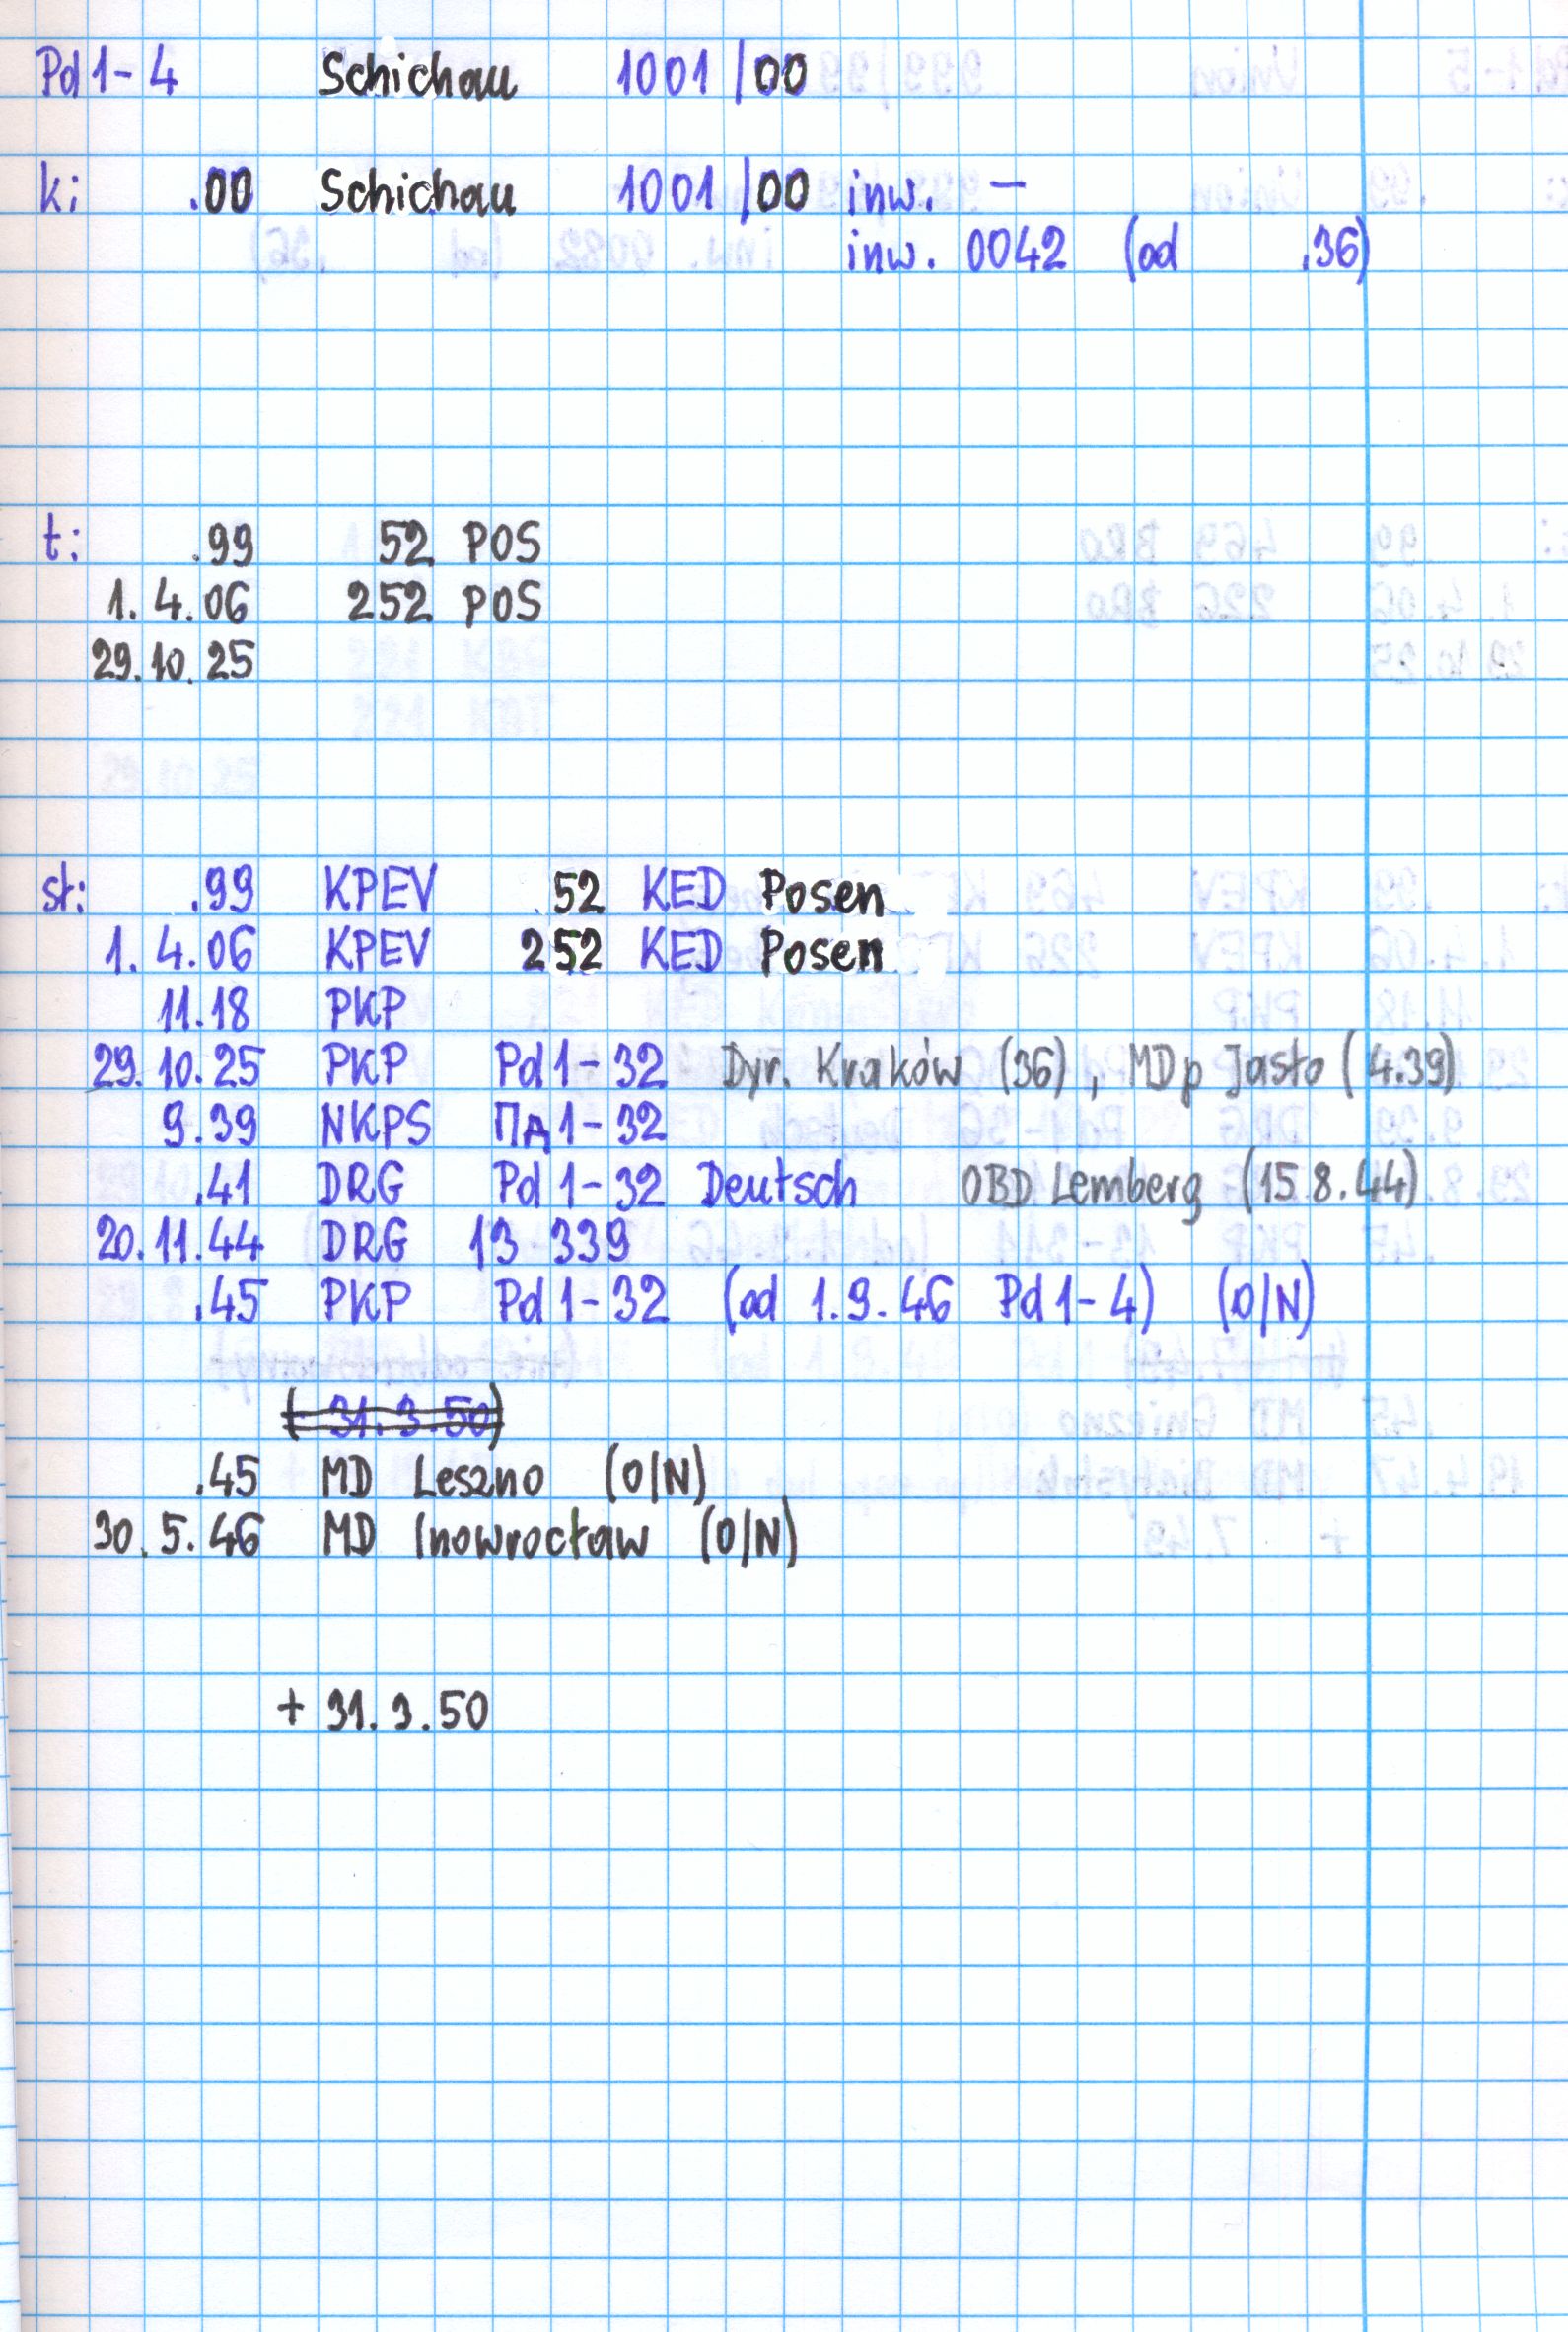 Pd1-4 Schichau 1001/00
k: .00 Schichau 1001/00 inw. —
inw. 0042 (od .36)
t: .99 52 POS
1.4.06 252 POS
29.10.25
st: .99 KPEV 52 KED Posen
1.4.06 KPEV 252 KED Posen
11.18 PKP
29.10.25 PKP Pd1-32 Dyr. Kraków (36), MDp Jasło (4.39)
9.39 NKPS Пд1-32
.41 DRG Pd1-32 Deutsch OBD Lemberg (15.8.44)
20.11.44 DRG 13 339
.45 PKP Pd1-32 (od 1.9.46 Pd1-4) (O/N)
(+ 31.3.50)
.45 MD Leszno (O/N)
30.5.46 MD Inowrocław (O/N)
+ 31.3.50